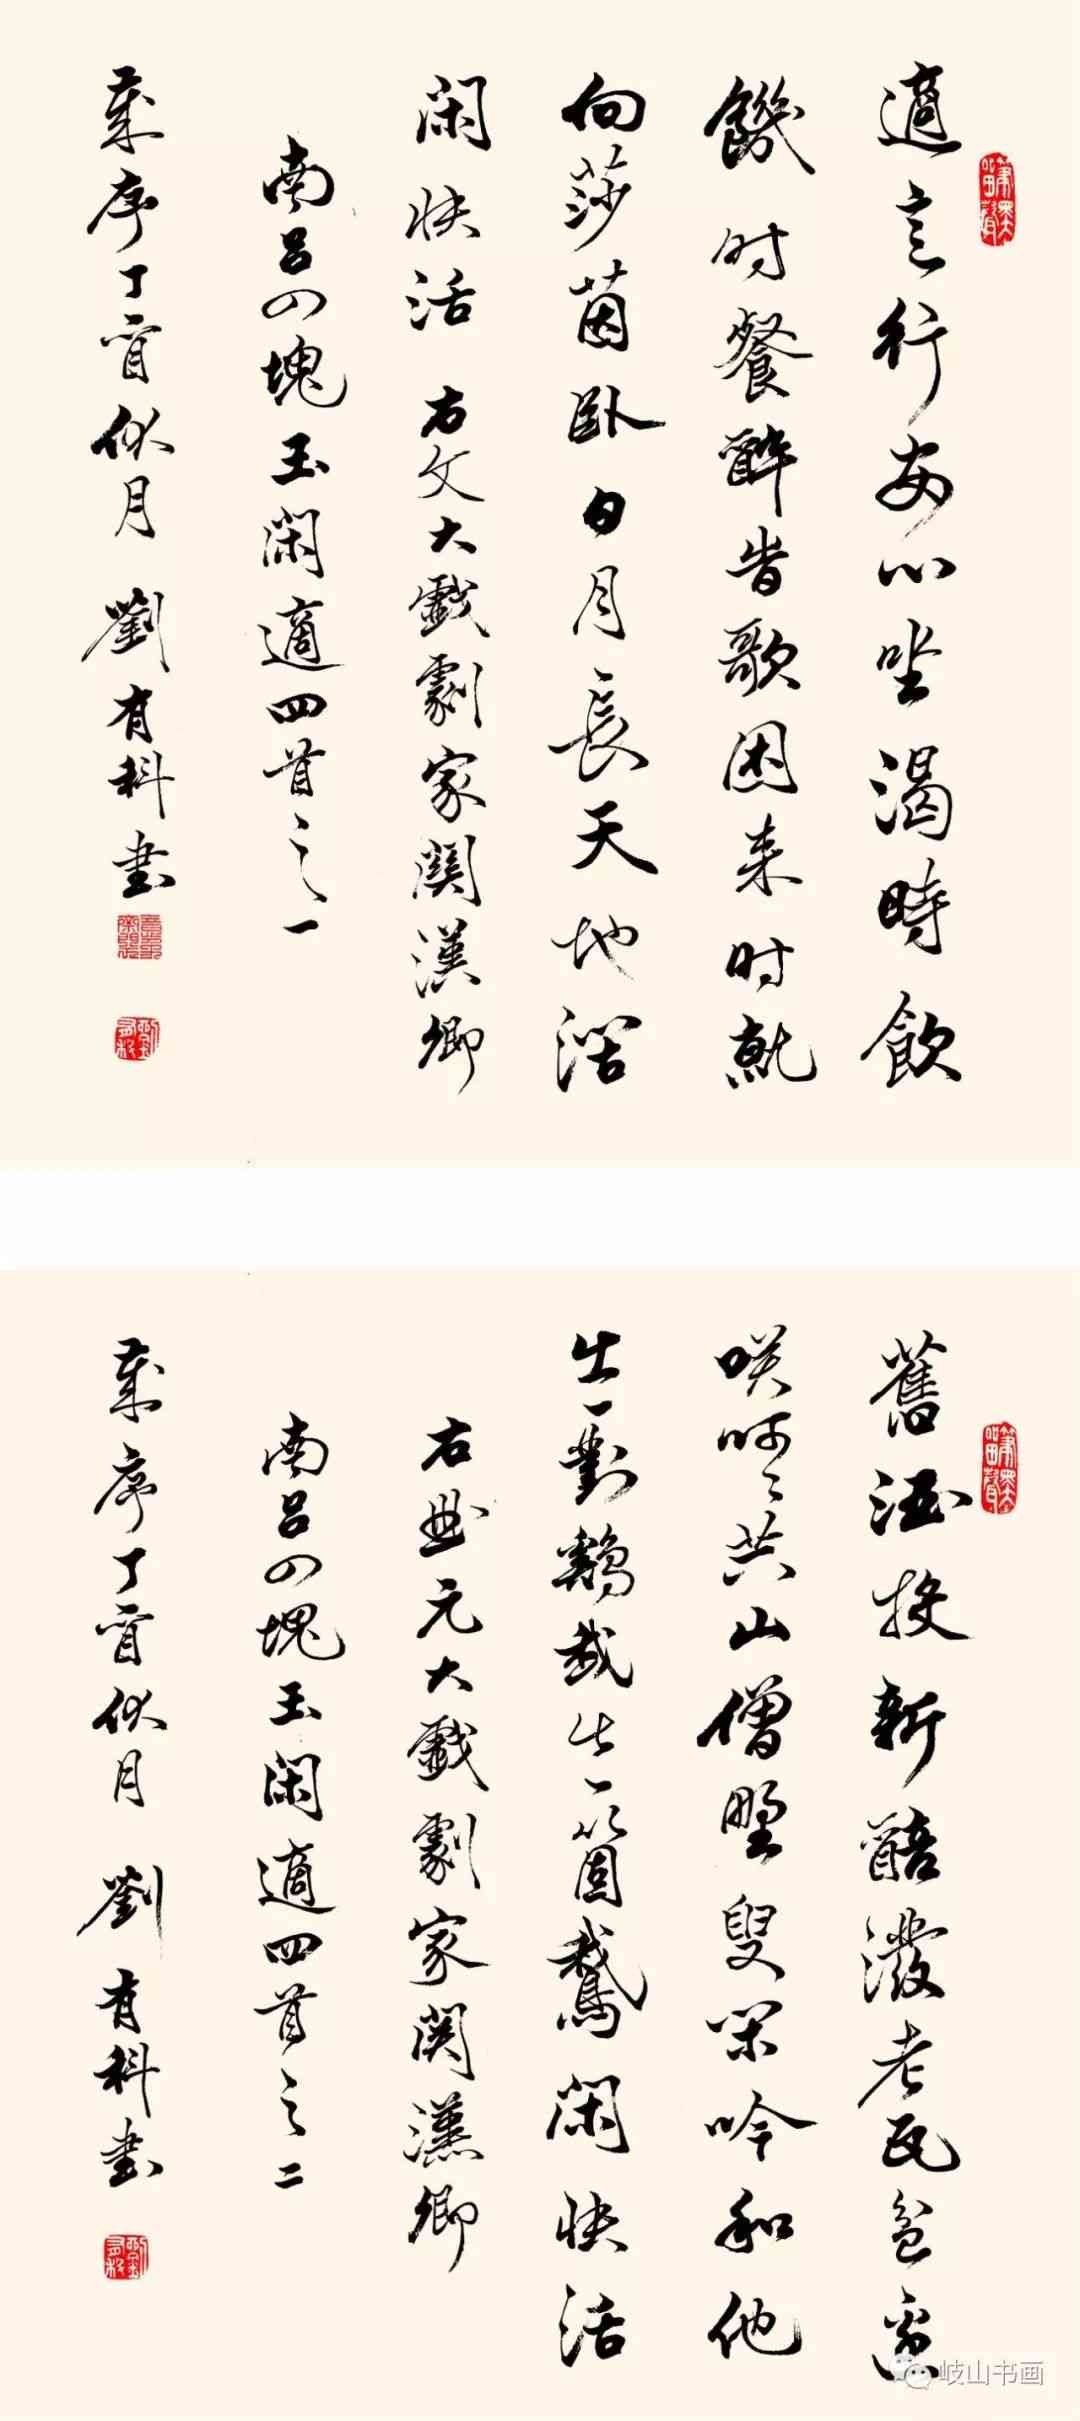 適意行安心坐渴時飲
饑时餐醉昔歌困来时就
向莎茵卧日月長天地闊
闲快活
右文大戲劇家関漢卿
南呂四塊玉闲適四首之一
歲序丁酉似月 劉有科書
舊酒投新醅潑老瓦盆邊
咲呵々共山僧野叟闲吟和他
出一對鷄我出一箇鵞闲快活
右曲元大戲劇家関漢卿
南呂四塊玉闲適四首之二
歲序丁酉似月 劉有科書
岐山书画